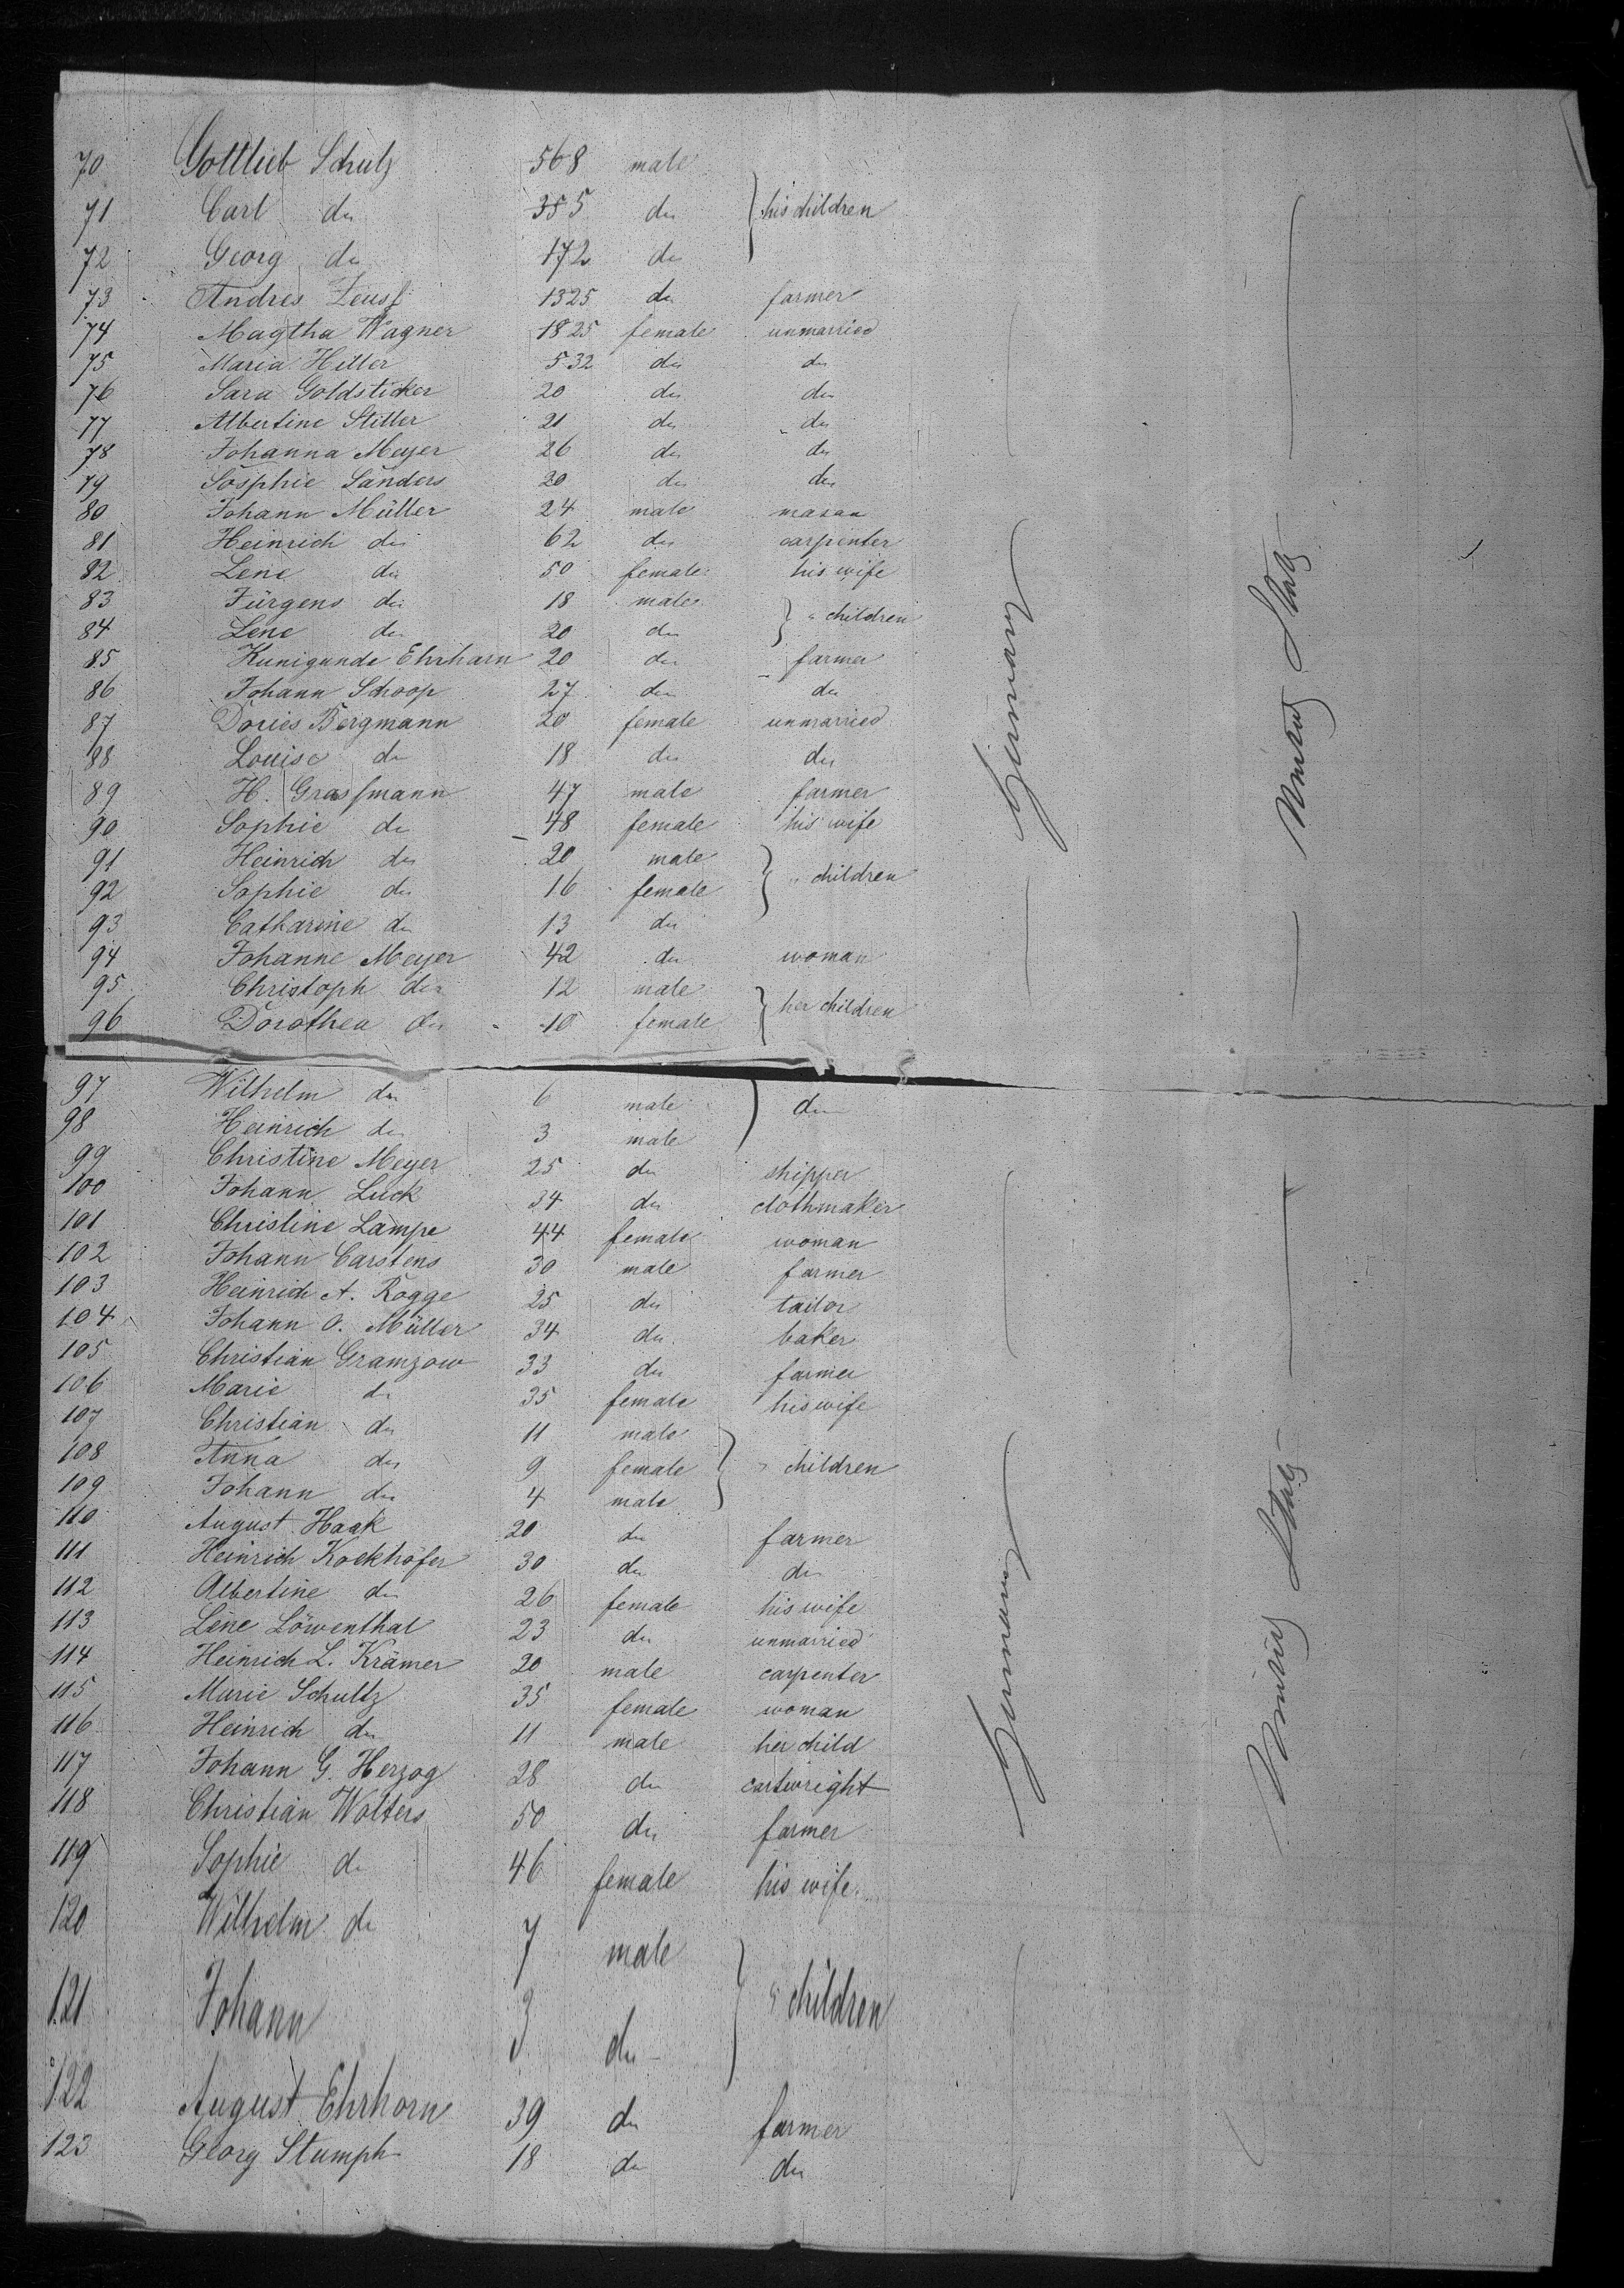 70 Gottlieb Schulz 568 male
71 Carl do 355 do his children
72 Georg do 172 do
73 Andres Zeuss 1325 do farmer
74 Magtha Wagner 1825 female unmarried
75 Maria Hiller 532 do do
76 Sara Goldsticker 20 do do
77 Albertine Stiller 21 do do
78 Johanna Meyer 26 do do
79 Sosphie Sanders 20 do do
80 Johann Müller 24 male mason
81 Heinrich do 62 do carpenter
82 Lene do 50 female his wife
83 Jürgens do 18 male
84 Lene do 20 do " children
85 Kunigunde Ehrharn 20 do farmer
86 Johann Schoop 27 do do
87 Dories Bergmann 20 female unmarried
88 Louise do 18 do do
89 H. Grassmann 47 male farmer
90 Sophie do 48 female his wife
91 Heinrich do 20 male
92 Sophie do 16 female " children
93 Catharine do 13 do
94 Johanne Meyer 42 do woman
95 Christoph do 12 male
96 Dorothea do 10 female her children
Germany
United Stats
97 Wilhelm do 6 male do
98 Heinrich do 3 male
99 Christine Meyer 25 do shipper
100 Johann Luck 34 do clothmaker
101 Christine Lampe 44 female woman
102 Johann Carstens 30 male farmer
103 Heinrich A. Rogge 25 do tailor
104 Johann O. Müller 34 do baker
105 Christian Gramzow 33 do farmer
106 Marie do 35 female his wife
107 Christian do 11 male
108 Anna do 9 female " children
109 Johann do 4 male
110 August Haak 20 do farmer
111 Heinrich Kockhöfer 30 do do
112 Albertine do 26 female his wife
113 Line Löwenthal 23 do unmarried
114 Heinrich L. Krämer 20 male carpenter
115 Marie Schultz 35 female woman
116 Heinrich do 11 male her child
117 Johann G. Herzog 28 do cartwright
118 Christian Wolters 50 do farmer
119 Sophie do 46 female his wife
120 Wilhelm do 7 male
121 Johann 3 do " children
122 August Ehrhorn 39 do farmer
123 Georg Stumph 18 do do
Germany
United Stats